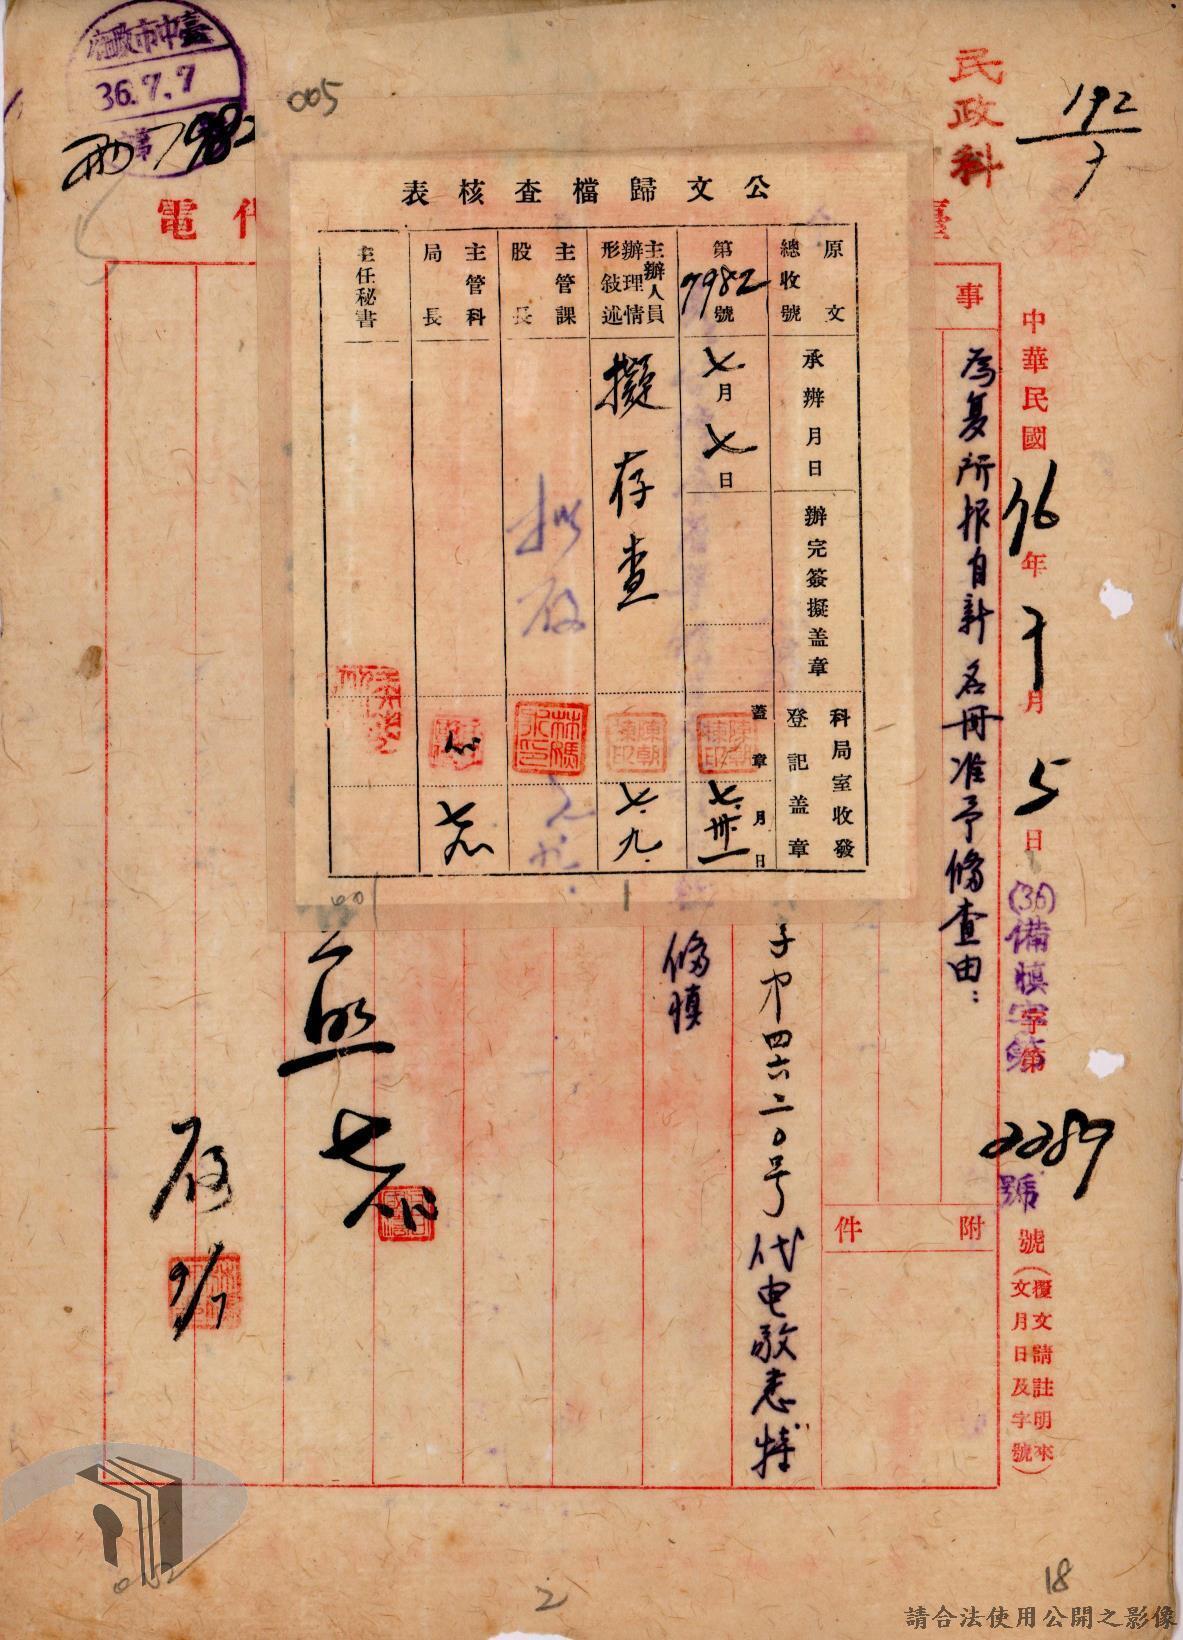 臺中市政府
36.7.7
7982
005
民政科
192
7
臺
代電
中華民國36年7月5日
(36)備慎字第2289號
號(覆文請註明來文月日及字號)
事
為复所报自新名冊准予俻查由:
附件
子第四六二0号代电敬悉
俻慎
公文歸檔查核表
原文總收號
承辦月日
辦完簽擬蓋章
科局室收發登記蓋章
第7982號
七月七日
蓋章
月日
七.卅一
主辦人員辦理情形敍述
擬存查
七.九.
主管課股長
主管科局長
主任秘書
001
002
2
18
請合法使用公開之影像